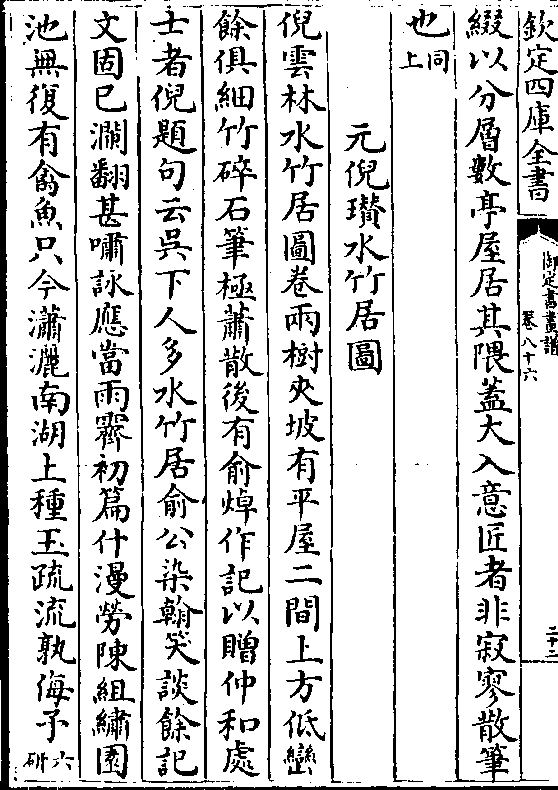 欽定四庫全書
御定書畫譜
卷八十六
二十二
綴以分層數亭屋居其隈蓋大入意匠者非寂寥散筆
也同上
元倪瓚水竹居圖
倪雲林水竹居圖卷兩樹夾坡有平屋二間上方低巒
餘俱細竹碎石筆極蕭散後有俞焯作記以贈仲和處
士者倪題句云吳下人多水竹居俞公染翰笑談餘記
文固已瀾翻甚嘯詠應當雨霽初篇什漫勞陳組繡園
池無復有禽魚只今瀟灑南湖上種玉疏流孰侮予六研